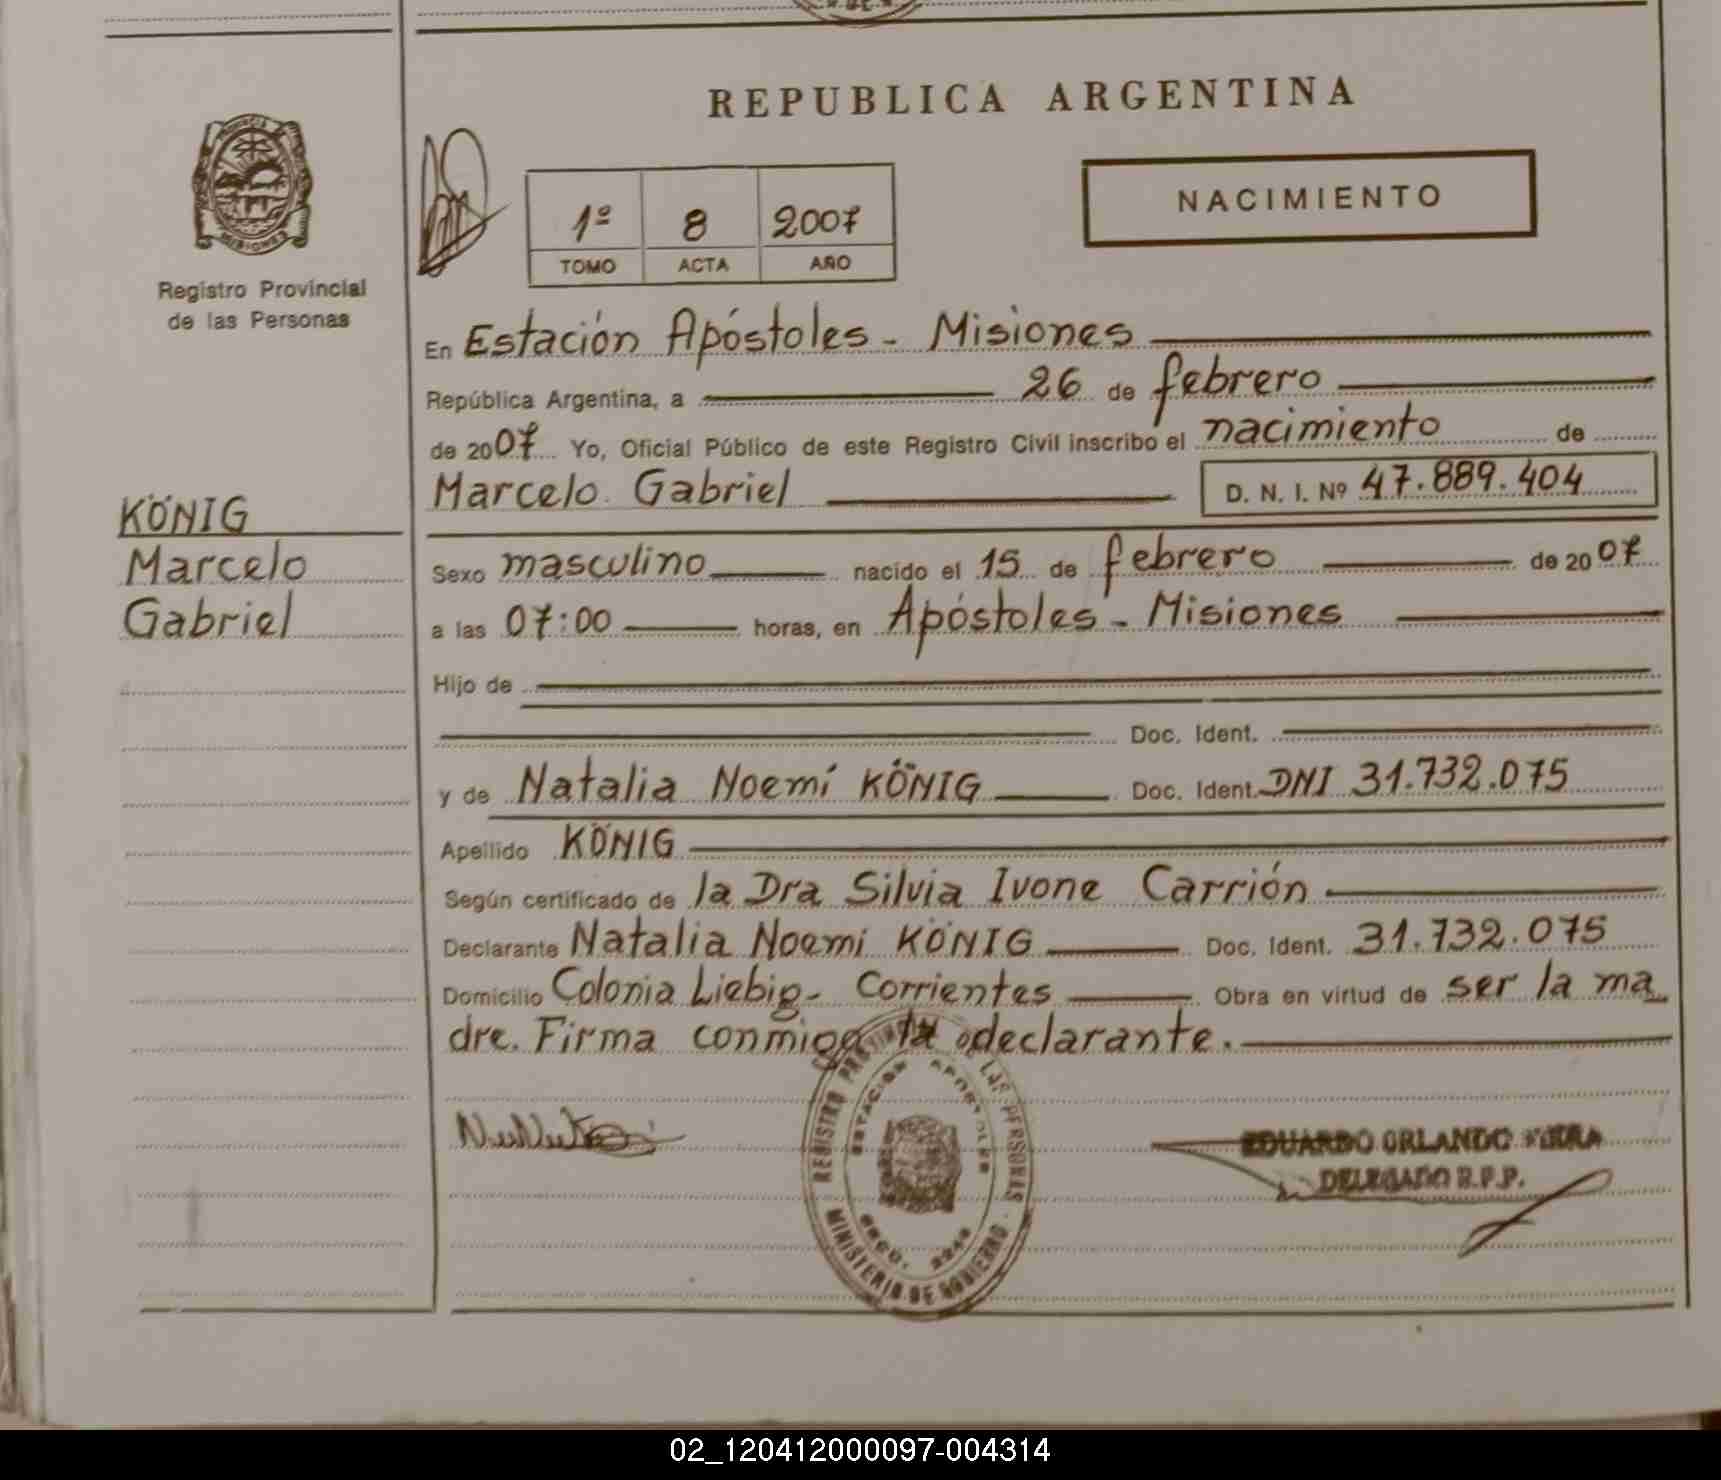 REPUBLICA ARGENTINA
PROVINCIA DE
MISIONES
Registro Provincial
de las Personas
1º 8 2007
TOMO ACTA AÑO
NACIMIENTO
En Estación Apóstoles - Misiones
República Argentina, a 26 de febrero
de 2007 Yo, Oficial Público de este Registro Civil inscribo el nacimiento de
Marcelo Gabriel D. N. I. Nº 47.889.404
KÖNIG
Marcelo
Gabriel
Sexo masculino nacido el 15 de febrero de 2007
a las 07:00 horas, en Apóstoles - Misiones
Hijo de
Doc. Ident.
y de Natalia Noemí KÖNIG Doc. Ident. DNI 31.732.075
Apellido KÖNIG
Según certificado de la Dra Silvia Ivone Carrión
Declarante Natalia Noemi KÖNIG Doc. Ident. 31.732.075
Domicilio Colonia Liebig - Corrientes Obra en virtud de ser la ma
dre. Firma conmigo la declarante.
REGISTRO PROVINCIAL DE LAS PERSONAS
ESTACION APOSTOLES
MINISTERIO DE GOBIERNO
EDUARDO ORLANDO
DELEGADO R.P.P.
02_120412000097-004314